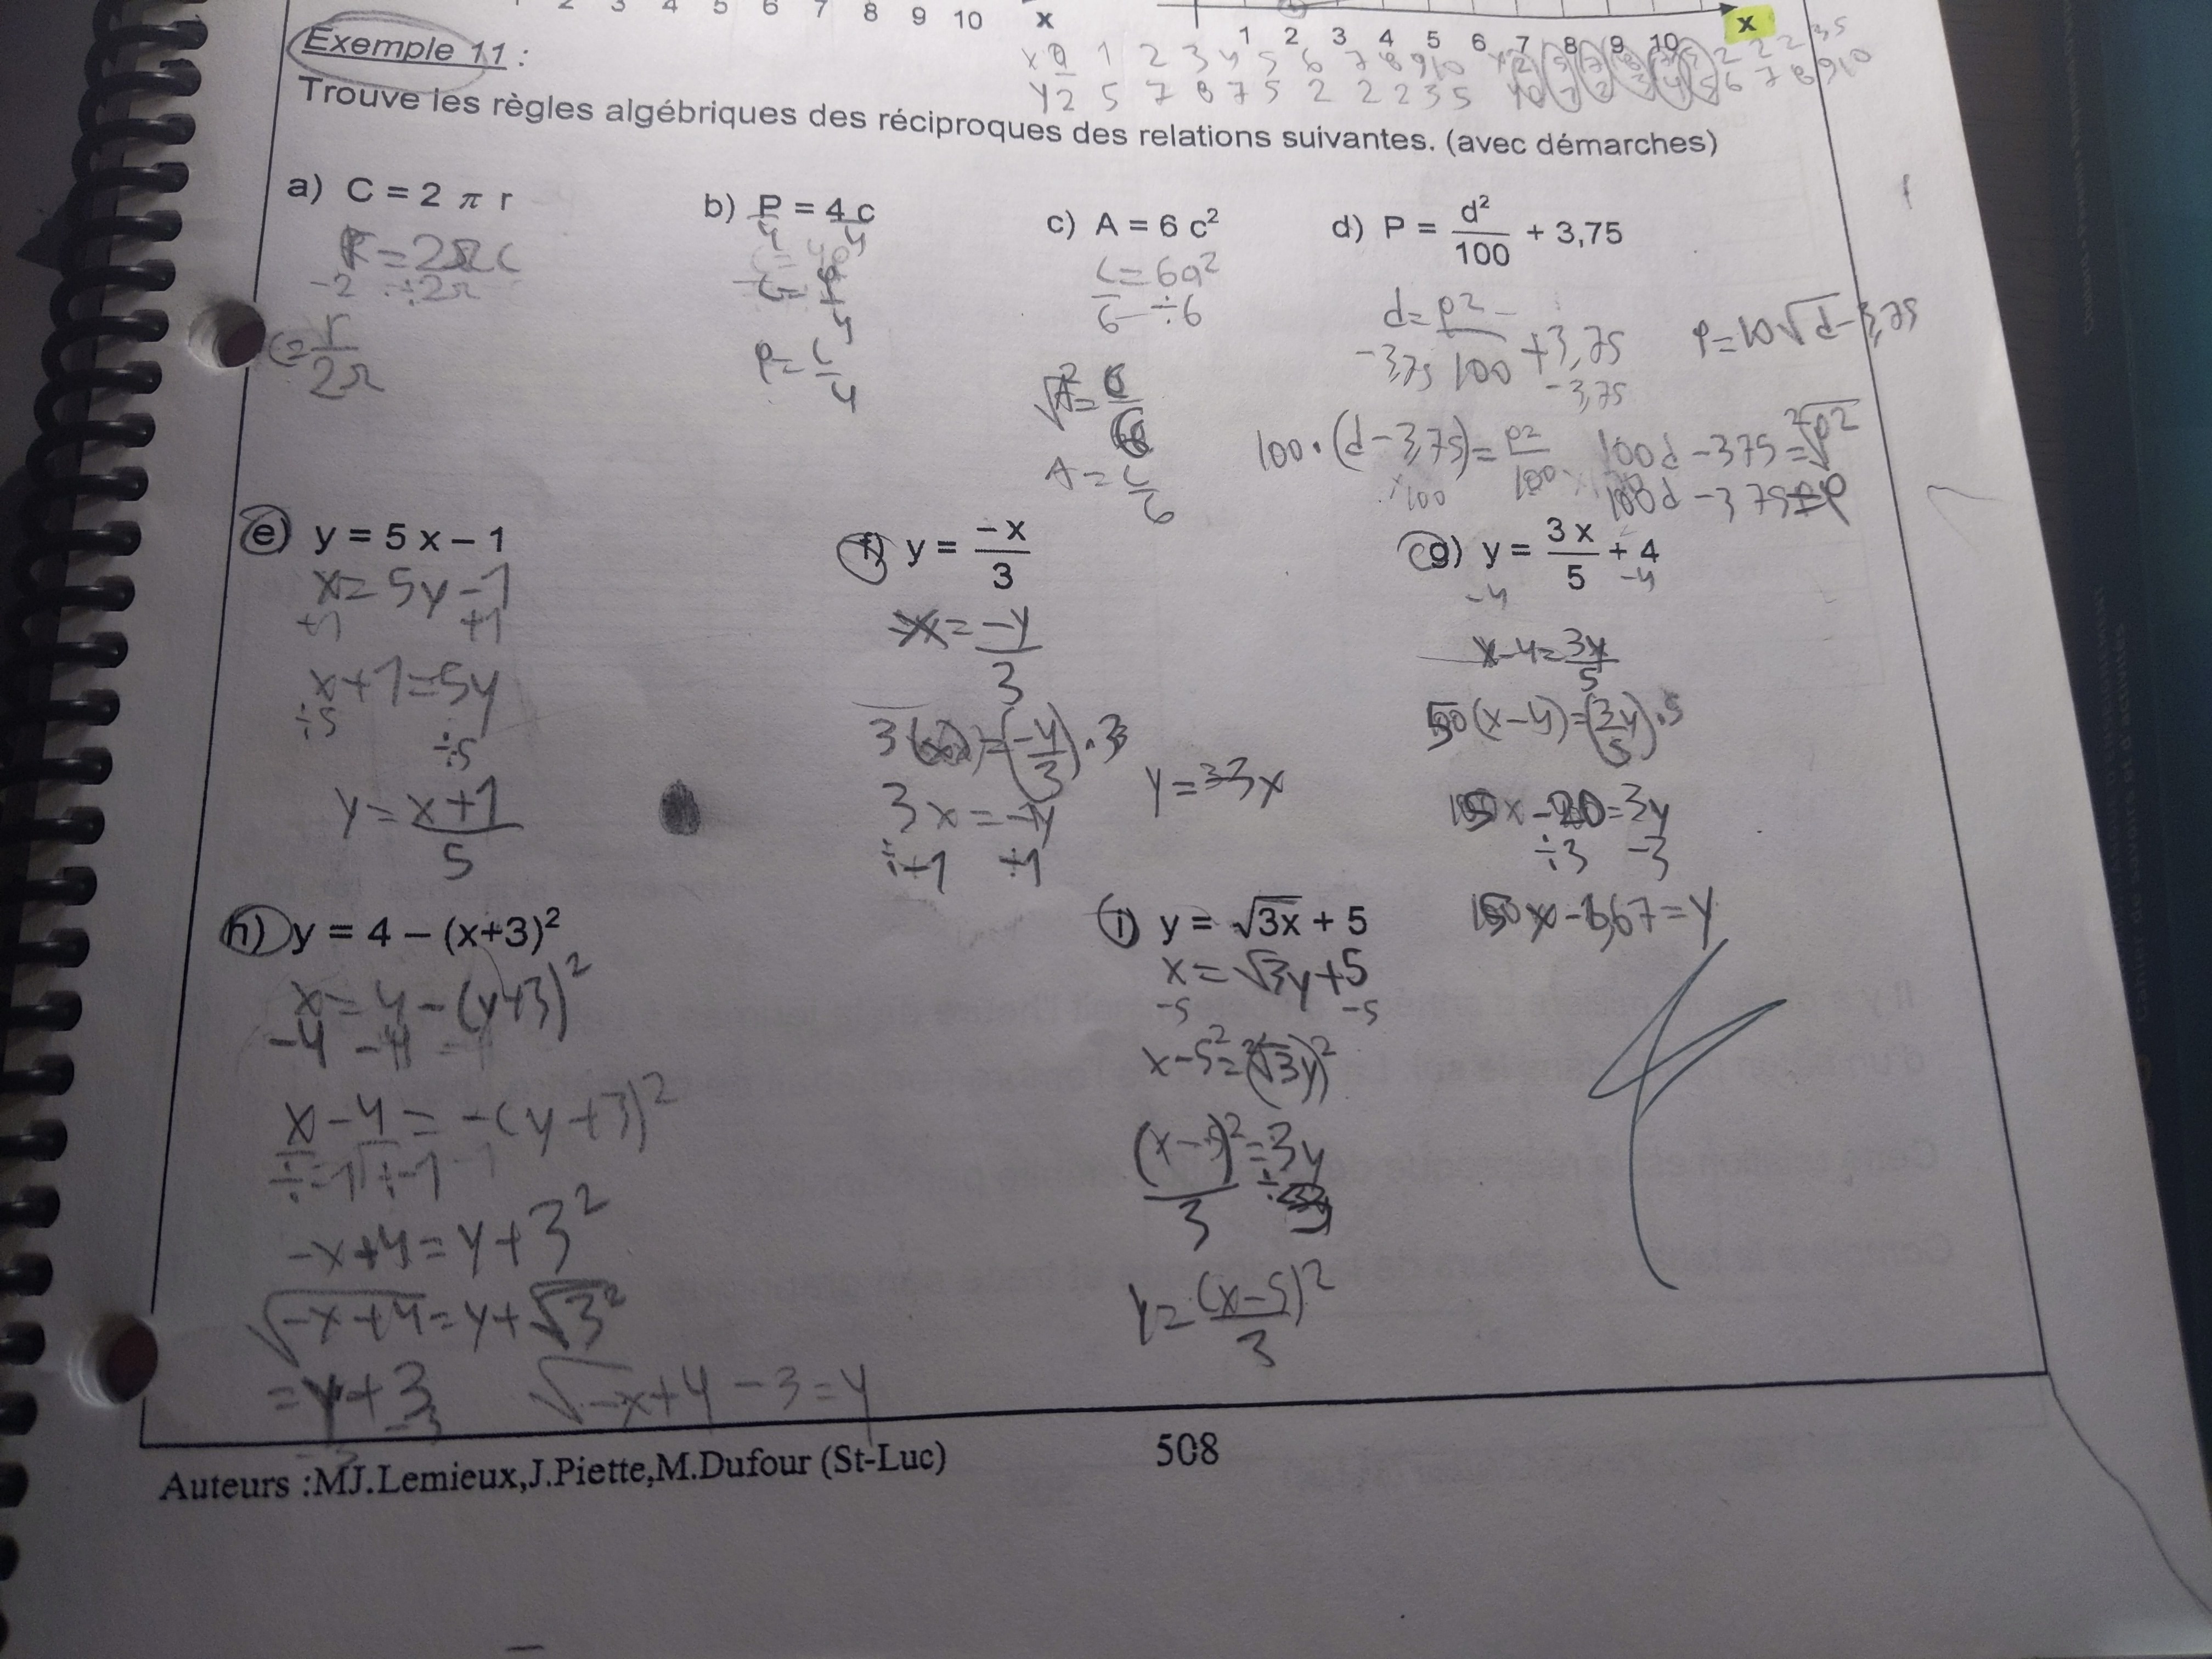 2 3 4 5 6 7 8 9 10 x
1 2 3 4 5 6 7 8 9 10 x
Exemple 11 :
x 0 1 2 3 4 5 6 7 8 9 10
y 2 5 7 8 7 5 2 2 2 3 5
6 7 8 9 10
Trouve les règles algébriques des réciproques des relations suivantes. (avec démarches)
a) C = 2 π r
r = 2πc
÷2π
c = r/2π
b) P = 4 c
4 4
P = c/4
c) A = 6 c²
c = 6a²
6 ÷6
A = c/6
d) P = d²/100 + 3,75
d = p²/100 + 3,75
-3,75 -3,75
P = 10√d-3,75
100·(d-3,75) = p²/100
100d - 375 = ²√p²
100d - 375 = p
e) y = 5 x – 1
x = 5y - 1
+1 +1
x + 1 = 5y
÷5 ÷5
y = x+1/5
f) y = – x/3
x = -y/3
3(x) = (-y/3)·3
3x = -y
÷-1 ÷-1
y = -3x
g) y = 3 x/5 + 4
-4 -4
x - 4 = 3y/5
5(x-4) = (3y/5)·5
5x - 20 = 3y
÷3 -3
x - 6,67 = y
h) y = 4 – (x+3)²
x = 4 - (y+3)²
-4 -4
x - 4 = -(y+3)²
÷-1 ÷-1
-x+4 = y+3²
√-x+4 = y+√3²
= y+3
-3 -3
√-x+4 - 3 = y
i) y = √3x + 5
x = √3y + 5
-5 -5
x-5² = (√3y)²
(x-5)²/3 = 3y
y = (x-5)²/3
Auteurs :MJ.Lemieux,J.Piette,M.Dufour (St-Luc)
508